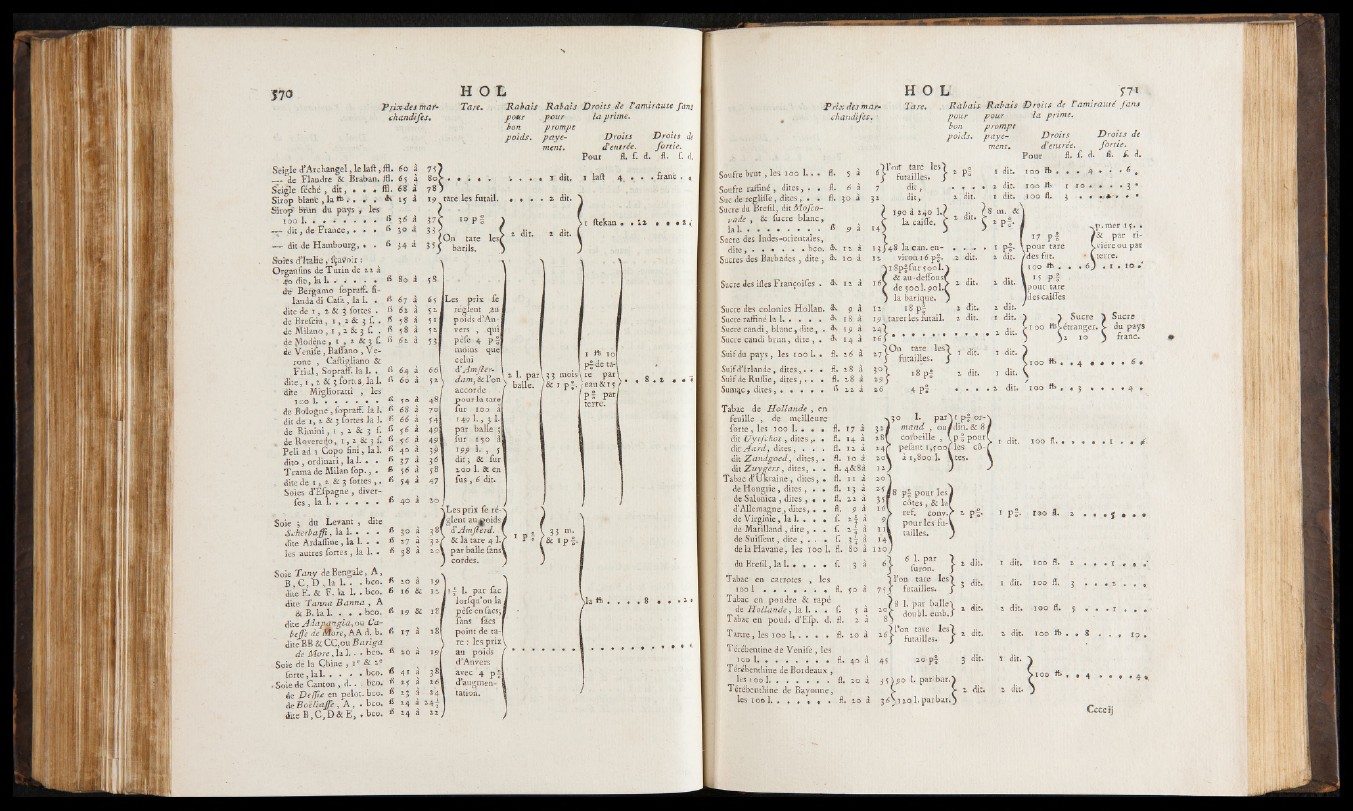 570
HOL
Prix des mar- Tare. Rabais Rabais Droits de l'amirauté sans
chandises. pour pour la prime.
bon prompt
poids. paye- Droits Droits de
ment. d'entrée. sortie.
Pour fl. s. d. fl. s. d.
Seigle d'Archangel, le last, ffl. 60 à 75
— de Flandre & Braban, ffl. 65 à 80 . . . . . 1 dit. 1 last 4 . . . franc .
Seigle séché, dit, . . . ffl. 68 à 78
Sirop blanc, la ℔ . . . 15 à 19 tare les futail. . . . . 2 dit.
Sirop brun du pays, les
100 l. . . . . . . . ß 36 à 37 10 p° 1 stekan . . 12
— dit, de France, . . . ß 30 à 33 2 dit. 2 dit.
On tare les
— dit de Hambourg, . . ß 34 à 35 barils.
Soies d'Italie, sçavoir :
Organsins de Turin de 22 à
dito, la l. . . . . . ß 80 à 58
de Bergamo sopraff. fi-
landa di Casa, la l. . ß 67 à 65
dite de 1, 2 & 3 sortes . ß 62 à 52
de Brescia, 1, 2 & 3 s. . ß 58 à 51
de Milano, 1, 2 & 3 s. . ß 58 à 52
de Modène, 1, 2 & 3 s. ß 62 à 53
de Venise, Bassano, Ve-
rone, Castigliano &
Frial, Sopraff. la l. . ß 64 à 66
dite, 1, 2 & 3 sortes, la l. ß 60 à 52
dite Miglioratti, les
100 l. . . . . . . ß 50 à 48
de Bologne, sopraff. la l. ß 68 à 70
dit de 1, 2 & 3 sortes la l. ß 66 à 54
de Rimini, 1, 2 & 3 s. ß 56 à 49
de Roveredo, 1, 2 & 3 s. ß 56 à 49
Peli ad 1 Copo fini, la l. ß 40 à 39
dito, ordinari, la l. . . ß 37 à 36
Trama de Milan sop., . ß 56 à 58
dite de 1, 2 & 3 sortes, . ß 54 à 47
Soies d'Espagne, diver-
ses, la l. . . . . . ß 40 à 20
Les prix se
reglent au
poids d'An-
vers, qui
pese 4 p°
moins que
celui
d'Amster-
dam, & l'on
accorde
pour la tare
sur 100 à
149 l., 3 l.
par balle;
sur 150 à
199 l., 5
dit; & sur
200 l. & en
sus, 6 dit.
2 l. par
balle.
33 mois
& 1 p°.
1 ℔ 10
p° de ta-
re par
eau & 15
p° par
terre.
. . 8 . 2 . . .
Soie ; du Levant, dite
Scherbaffi, la l. . . . ß 30 à 38
dite Ardassine, la l. . . ß 27 à 32
les autres sortes, la l. . ß 38 à 20
Les prix se ré-
glent au poids
d'Amsterd.
& la tare 4 l.
par balle sans
cordes.
1 p°
33 m.
& 1 p°.
Soie Tany de Bengale, A,
B, C, D, la l. . . bco. ß 20 à 19
dite E. & F. la l. . bco. ß 16 & 12
dite Tanna Banna, A
& B. la l. . . . bco. ß 19 & 18
dite Adapangia, ou Ca-
besse de More, AA d. b. ß 17 à 18
dite BB & CC, ou Bariga
de More, la l. . . bco. ß 20 à 19
Soie de la Chine, 1e & 2e
sorte, la l. . . . . bco. ß 41 à 38
Soie de Canton, d. . bco. ß 25 à 26
de Desse en pelot. bco. ß 23 à 24
de Boelbasse, A, . bco. ß 24 à 24½
dite B, C, D & E, . bco. ß 24 à 22
1½ l. par sac
lorsqu'on la
pése en sacs,
sans sacs
point de ta-
re : les prix
au poids
d'Anvers
avec 4 p°
d'augmen-
tation.
la ℔ . . . . . 8
HOL
571
Prix des mar- Tare. Rabais Rabais Droits de l'amirauté sans
chandises. pour pour la prime.
bon prompt
poids. paye- Droits Droits de
ment. d'entrée. sortie.
Pour fl. s. d. fl. s. d.
Soufre brut, les 100 l. . . fl. 5 à 6 l'on tare les futailles. 2 p° 1 dit. 100 ℔ . . . 4 . . . 6 .
Soufre raffiné, dites, . . fl. 6 à 7 dit, . . . . 2 dit. 100 ℔ 1 10 . . . . 3 .
Suc de reglisse, dites, . . fl. 30 à 32 dit, 2 dit. 1 dit. 100 fl. 3
Sucre du Bresil, dit Mosco-
vade, & sucre blanc,
la l. . . . . . . . . ß 9 à 14
190 à 240 l.
la caisse.
2 dit.
8 m. &
2 p°.
Sucre des Indes-orientales,
dite, . . . . . . bco. 12 à 13 48 la can. en- . . . . 1 p°.
Sucres des Barbades, dite, 10 à 12 viron 16 p°. 2 dit. 2 dit.
Sucre des isles Françoises . 12 à 16
18 p° sur 500 l.
& au-dessous
de 500 l. 90 l.
la barique.
2 dit. 2 dit.
17 p°
pour tare
des fut.
100 ℔ . . . 6
15 p°
pour tare
des caisses
p. mer 15. .
& par ri-
viere ou par
terre.
. 1 . 10 .
Sucre des colonies Hollan. 9 à 12 18 p° 2 dit. 2 dit.
Sucre raffiné la l. . . . . 18 à 19 tarer les futail. 2 dit. 1 dit.
Sucre candi, blanc, dite, . 19 à 24
Sucre candi brun, dite, . 14 à 16 . . . . . . . . . . 2 dit.
100 ℔ Sucre étranger. 2 10
Sucre du pays franc.
Suif du pays, les 100 l. . fl. 26 à 27 On tare les futailles. 1 dit. 1 dit.
Suif d'Irlande, dites, . . fl. 28 à 30
Suif de Russie, dites, . . fl. 28 à 29 18 p° 2 dit. 1 dit. 100 ℔ . . 4 . . . . 6 .
Sumac, dites, . . . . . ß 22 à 26 4 p° . . . . 2 dit. 100 ℔ . . 3 . . . . 4 .
Tabac de Hollande, en
feuille, de meilleure
sorte, les 100 l. . . . fl. 17 à 32
dit Uytschot, dites, . . fl. 14 à 28
dit Aard, dites, . . . fl. 12 à 24
dit Zandgoed, dites, . fl. 10 à 20
dit Zuygers, dites, . . fl. 4&8 à 12
30 l. par
mand, ou
corbeille,
pesant 1,500
à 1,800 l.
1 p° or-
din. & 8
p° pour
les cô-
tes.
1 dit. 100 fl. . . . . . 1 . .
Tabac d'Ukraine, dites, . fl. 11 à 20
de Hongrie, dites, . . fl. 13 à 25
de Salonica, dites, . . fl. 22 à 35
d'Allemagne, dites, . . fl. 9 à 16
de Virginie, la l. . . . s. 2½ à 9
de Mariland, dite, . . s. 2½ à 11
de Suissent, dite, . . . s. 3½ à 14
de la Havane, les 100 l. fl. 80 à 120
8 p° pour les
côtes, & la
ref. conv.
pour les fu-
tailles.
2 p°. 1 p°. 100 fl. 2 . . . 5 . . .
du Bresil, la l. . . . . s. 3 à 6 6 l. par suron. 2 dit. 1 dit. 100 fl. 2 . . . 1 . . .
Tabac en carottes, les
100 l. . . . . . . . fl. 50 à 75 l'on tare les futailles. 3 dit. 1 dit. 100 fl. 3 . . . 2 . . .
Tabac en poudre & rapé
de Hollande, la l. . . s. 5 à 20
Tabac en poud. d'Esp. d. fl. 2 à 8
8 l. par balle
doubl. emb.
2 dit. 2 dit. 100 fl. 5 . . . 1 . . .
Tartre, les 100 l. . . . . fl. 20 à 26 l'on tare les futailles. 2 dit. 2 dit. 100 ℔ . . 8 . . . 10 .
Térébentine de Venise, les
100 l. . . . . . . . fl. 40 à 45 20 p° 3 dit. 1 dit.
Térébenthine de Bordeaux,
les 100 l. . . . . . . fl. 20 à 35 90 l. par bar.
Térébenthine de Bayonne,
les 100 l. . . . . . . fl. 20 à 36 120 l. par bar. 2 dit. 2 dit.
100 ℔ . . 4 . . . . 4
Cccc ij